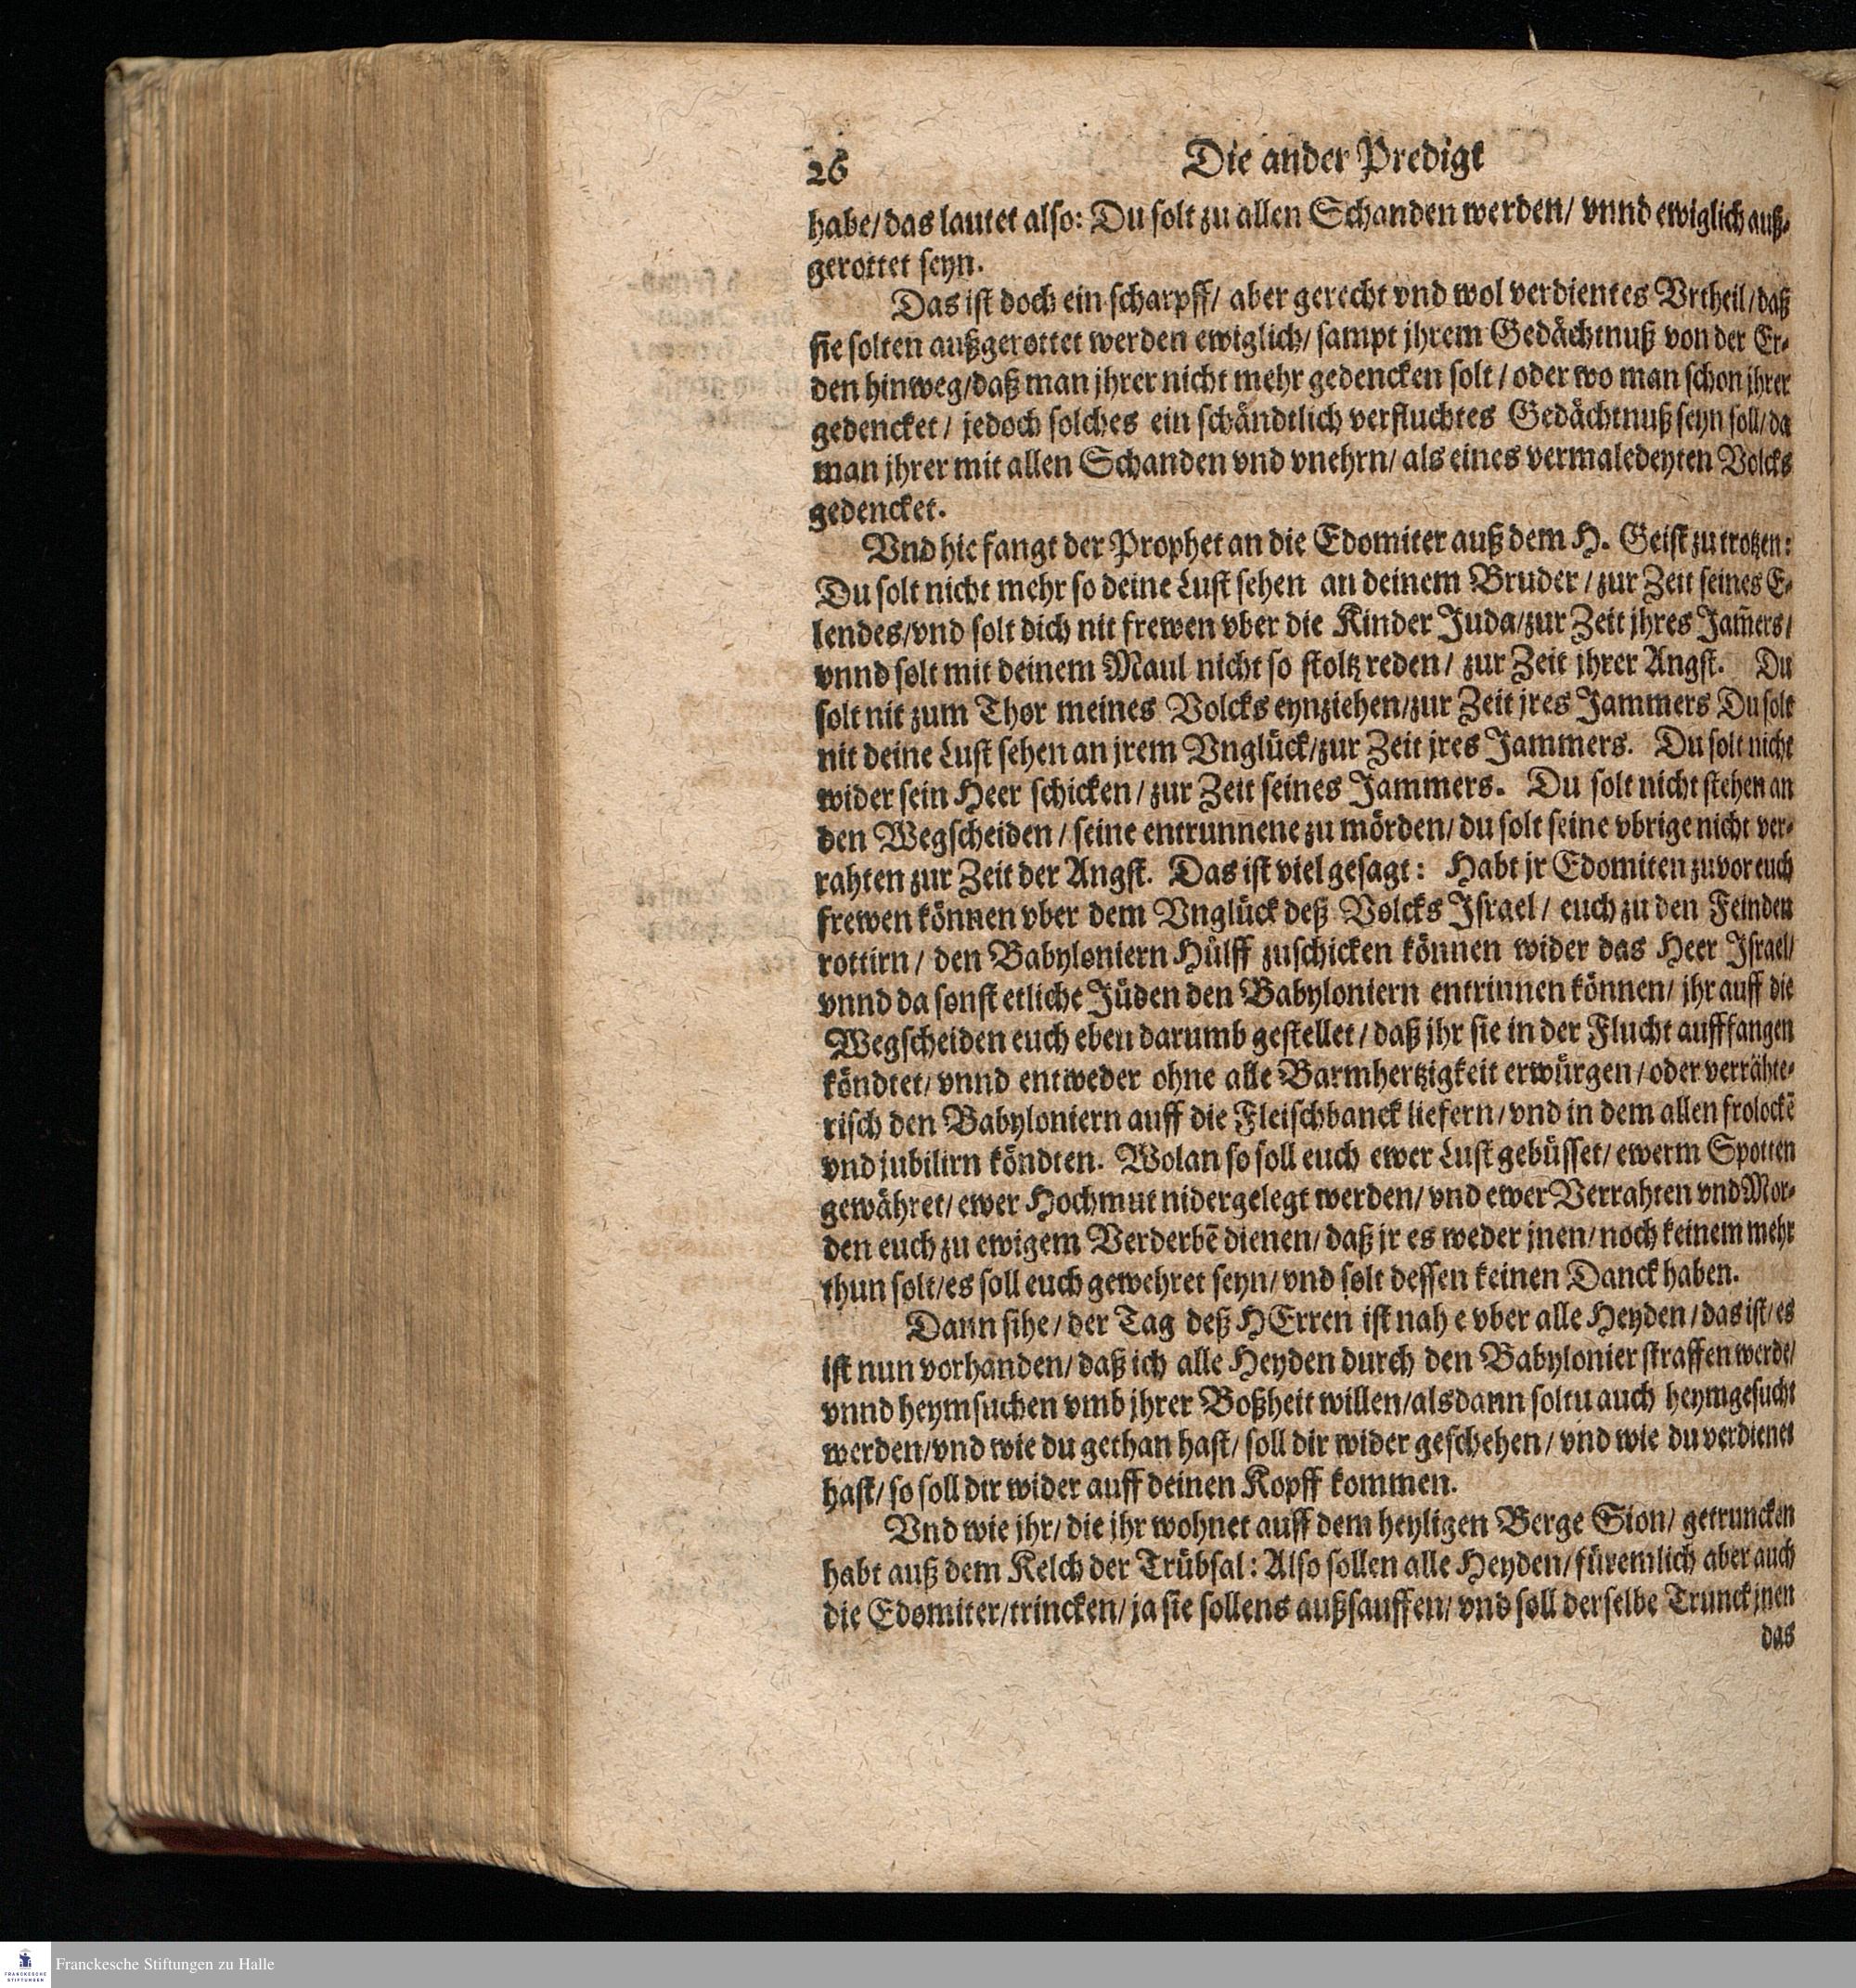 26 Die ander Predigt
habe/ das lautet also: Du solt zu allen Schanden werden/ vnnd ewiglich auß-
gerottet seyn.
Das ist doch ein scharpff/ aber gerecht vnd wol verdientes Vrtheil/ daß
sie solten außgerottet werden ewiglich/ sampt jhrem Gedächtnuß von der Er-
den hinweg/ daß man jhrer nicht mehr gedencken solt/ oder wo man schon jhrer
gedencket/ jedoch solches ein schändtlich verfluchtes Gedächtnuß seyn soll/ da
man jhrer mit allen Schanden vnd vnehrn/ als eines vermaledeyten Volcks
gedencket.
Vnd hie fangt der Prophet an die Edomiter auß dem H. Geist zu trotzen:
Du solt nicht mehr so deine Lust sehen an deinem Bruder/ zur Zeit seines E-
lendes/ vnd solt dich nit frewen vber die Kinder Juda/ zur Zeit jhres Jam̃ers/
vnnd solt mit deinem Maul nicht so stoltz reden/ zur Zeit jhrer Angst. Du
solt nit zum Thor meines Volcks eynziehen/ zur Zeit jres Jammers Du solt
nit deine Lust sehen an jrem Vnglück/ zur Zeit jres Jammers. Du solt nicht
wider sein Heer schicken/ zur Zeit seines Jammers. Du solt nicht stehen an
den Wegscheiden/ seine entrunnene zu mörden/ du solt seine vbrige nicht ver-
rahten zur Zeit der Angst. Das ist viel gesagt: Habt jr Edomiten zuvor euch
frewen können vber dem Vnglück deß Volcks Israel/ euch zu den Feinden
rottirn/ den Babyloniern Hülff zuschicken können wider das Heer Israel/
vnnd da sonst etliche Jüden den Babyloniern entrinnen können/ jhr auff die
Wegscheiden euch eben darumb gestellet/ daß jhr sie in der Flucht aufffangen
köndtet/ vnnd entweder ohne alle Barmhertzigkeit erwürgen/ oder verrähte-
risch den Babyloniern auff die Fleischbanck liefern/ vnd in dem allen frolockẽ
vnd jubilirn köndten. Wolan so soll euch ewer Lust gebüsset/ ewerm Spotten
gewähret/ ewer Hochmut nidergelegt werden/ vnd ewer Verrahten vnd Mor-
den euch zu ewigem Verderbẽ dienen/ daß jr es weder jnen/ noch keinem mehr
thun solt/ es soll euch gewehret seyn/ vnd solt dessen keinen Danck haben.
Dann sihe/ der Tag deß HErren ist nah e vber alle Heyden/ das ist/ es
ist nun vorhanden/ daß ich alle Heyden durch den Babylonier straffen werde/
vnnd heymsuchen vmb jhrer Boßheit willen/ alsdann soltu auch heymgesucht
werden/ vnd wie du gethan hast/ soll dir wider geschehen/ vnd wie du verdienet
hast/ so soll dir wider auff deinen Kopff kommen.
Vnd wie jhr/ die jhr wohnet auff dem heyligen Berge Sion/ getruncken
habt auß dem Kelch der Trübsal: Also sollen alle Heyden/ füremlich aber auch
die Edomiter/ trincken/ ja sie sollens außsauffen/ vnd soll derselbe Trunck jnen
das
Franckesche Stiftungen zu Halle
FRANCKESCHE
STIFTUNGEN